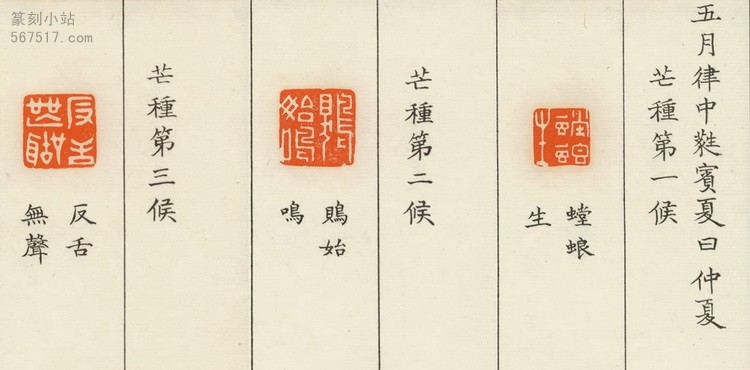 五月律中蕤賓夏曰仲夏
芒種第一候
螳蜋
生
芒種第二候
鵙始
鳴
芒種第三候
反舌
無聲
篆刻小站
567517.com